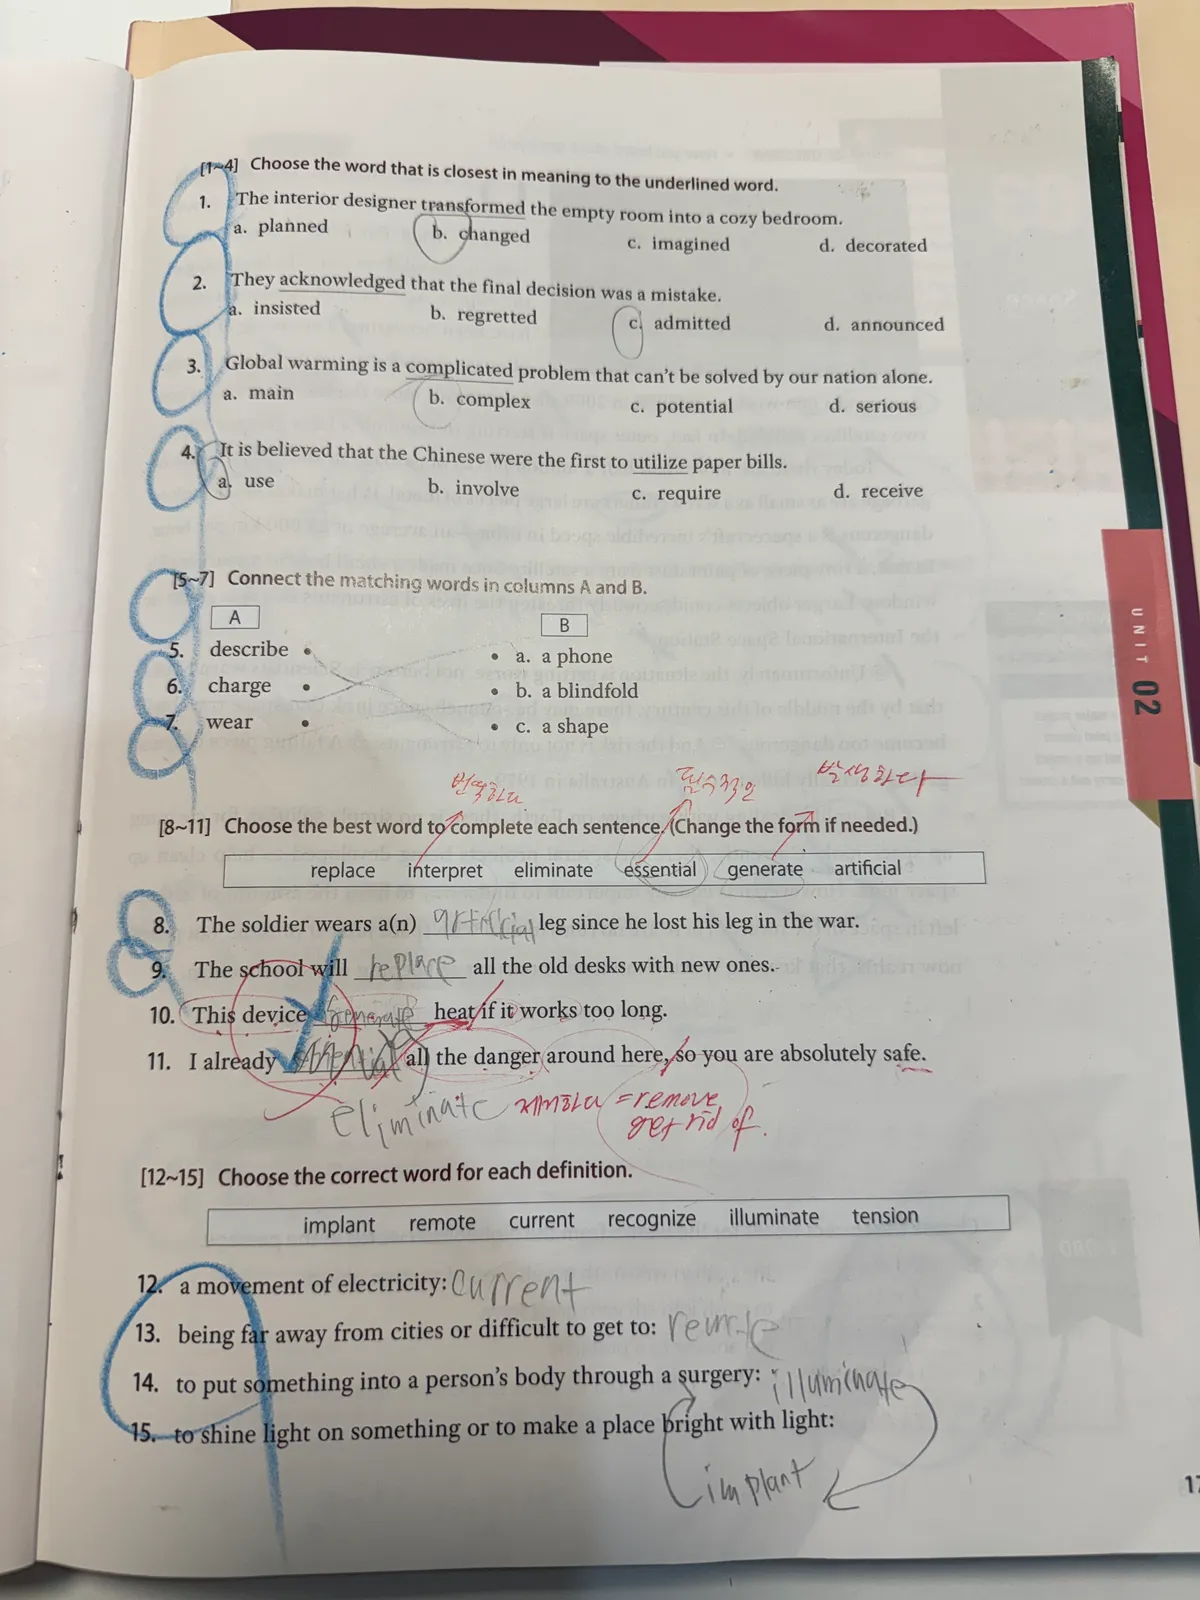 [1~4] Choose the word that is closest in meaning to the underlined word.
1. The interior designer transformed the empty room into a cozy bedroom.
a. planned b. changed c. imagined d. decorated
2. They acknowledged that the final decision was a mistake.
a. insisted b. regretted c. admitted d. announced
3. Global warming is a complicated problem that can't be solved by our nation alone.
a. main b. complex c. potential d. serious
4. It is believed that the Chinese were the first to utilize paper bills.
a. use b. involve c. require d. receive
[5~7] Connect the matching words in columns A and B.
A B
5. describe • • a. a phone
6. charge • • b. a blindfold
7. wear • • c. a shape
UNIT 02
발생하다
[8~11] Choose the best word to complete each sentence. (Change the form if needed.)
replace interpret eliminate essential generate artificial
8. The soldier wears a(n) artificial leg since he lost his leg in the war.
9. The school will replace all the old desks with new ones.
10. This device generate heat if it works too long.
11. I already essential all the danger around here, so you are absolutely safe.
eliminate 제거하다 = remove
get rid of.
[12~15] Choose the correct word for each definition.
implant remote current recognize illuminate tension
12. a movement of electricity: current
13. being far away from cities or difficult to get to: remote
14. to put something into a person's body through a surgery: illuminate
15. to shine light on something or to make a place bright with light:
implant